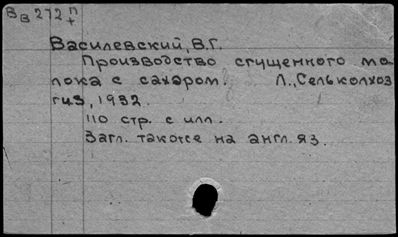 Вв 272 п+
Василевский, В.Г.
Производство сгущенного мо
лока с сахаром. Л., Сельколхоз
гиз, 1932.
110 стр. с илл.
Загл. также на англ. яз.